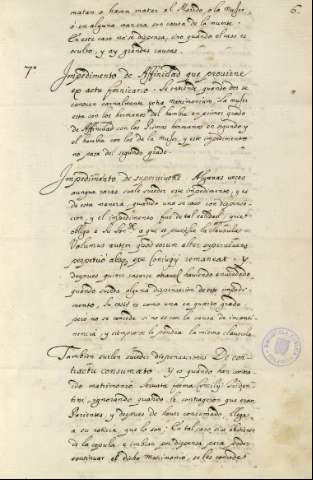 matan o hazen matar al Marido, o la Muger,
o en alguna manera son causa de la muerte.
En este caso no se dispensa, sino quando el caso es
oculto, y ay grandes causas.
6.
7º
Impedimento de Affinidad que proviene
ex actu fornicario. Se entiende quando dos se
conocen carnalmente extra Matrimonium. La muger
esta con los hermanos del hombre en primer grado
de Affinidad con los Primos hermanos en segundo y
el hombre con los de la Muger, y este impedimento
no passa del segundo grado.
Impedimento de supervivente. Algunas veces
aunque raras suele suceder este impedimento, y es
de esta manera, quando uno se casó con dispensa
cion, y el impedimento fue de tal calidad, que
obligo a Su a que se pusiesse la clausula
Volumus autem quod eorum alter superviuens
perpetuo absq. spe Coniugij remaneat. y
despues quiere casarse otra vez haviendo enviudado
quando suceda alguna dispensacion de este impedi
mento, su coste es como una en quarto grado
pero no se concede si no es con la causa de inconti
nencia, y siempre se pondra la misma clausula.
Tambien suelen suceder dispensaciones De con
tractu consumato. Y es quando han contra
ido matrimonio iuxta forma Concilij Triden
tini, ignorando quando le contragion que eran
Parientes, y despues de haver consumado, llega
a su noticia que lo son. En tal caso
de la copula, e embian por dispensa, para poder
continuar el dicho Matrimonio, se les concede